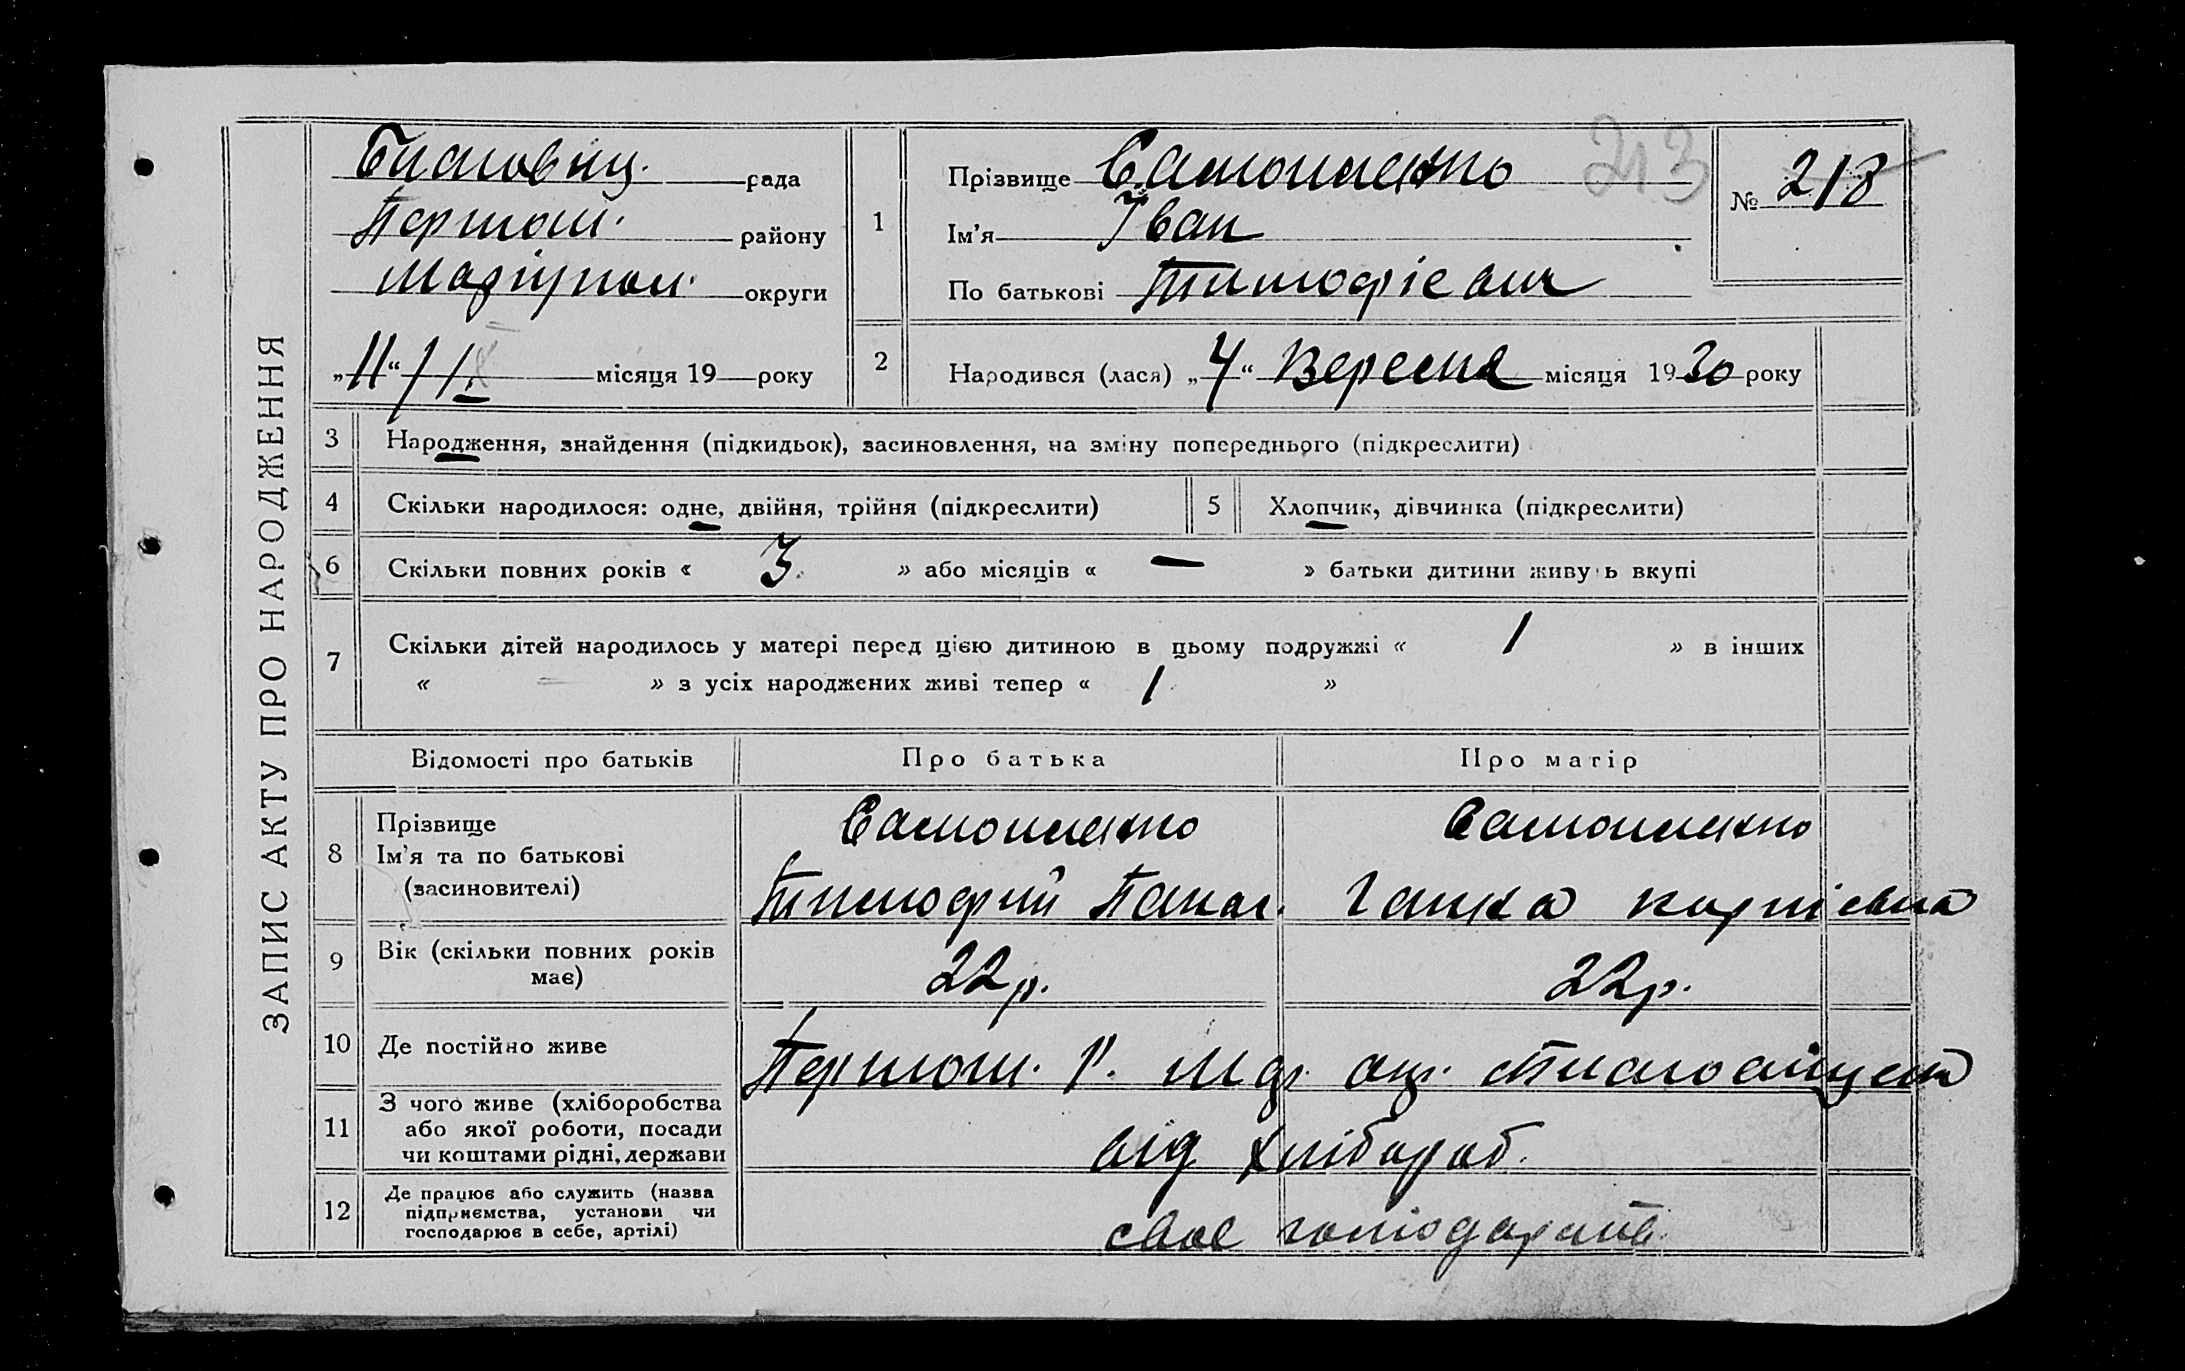 ЗАПИС АКТУ ПРО НАРОДЖЕННЯ
рада
Першот. району
Маріупол. округи
„11“ місяця 19 року
1
Прізвище
Ім'я Іван
По батькові Тимофієвич
213
№ 218
2
Народився (лася) „4“ Вересня місяця 1930 року
3 Народження, знайдення (підкидьок), засиновлення, на зміну попереднього (підкреслити)
4 Скільки народилося: одне, двійня, трійня (підкреслити)
5 Хлопчик, дівчинка (підкреслити)
6 Скільки повних років « 3 » або місяців « — » батьки дитини живуть вкупі
7 Скільки дітей народилось у матері перед цією дитиною в цьому подружжі « 1 » в інших
« — » з усіх народжених живі тепер « 1 »
Відомості про батьків Про батька Про матір
8 Прізвище
Ім'я та по батькові
(засиновителі)
Тимофій Панас. Ганна Карпієвна
9 Вік (скільки повних років
має)
22 р. 22 р.
10 Де постійно живе
Першот. р.
11 З чого живе (хліборобства
або якої роботи, посади
чи коштами рідні, держави
від хлібороб.
12 Де працює або служить (назва
підприємства, установи чи
господарює в себе, артілі)
своє господарств.